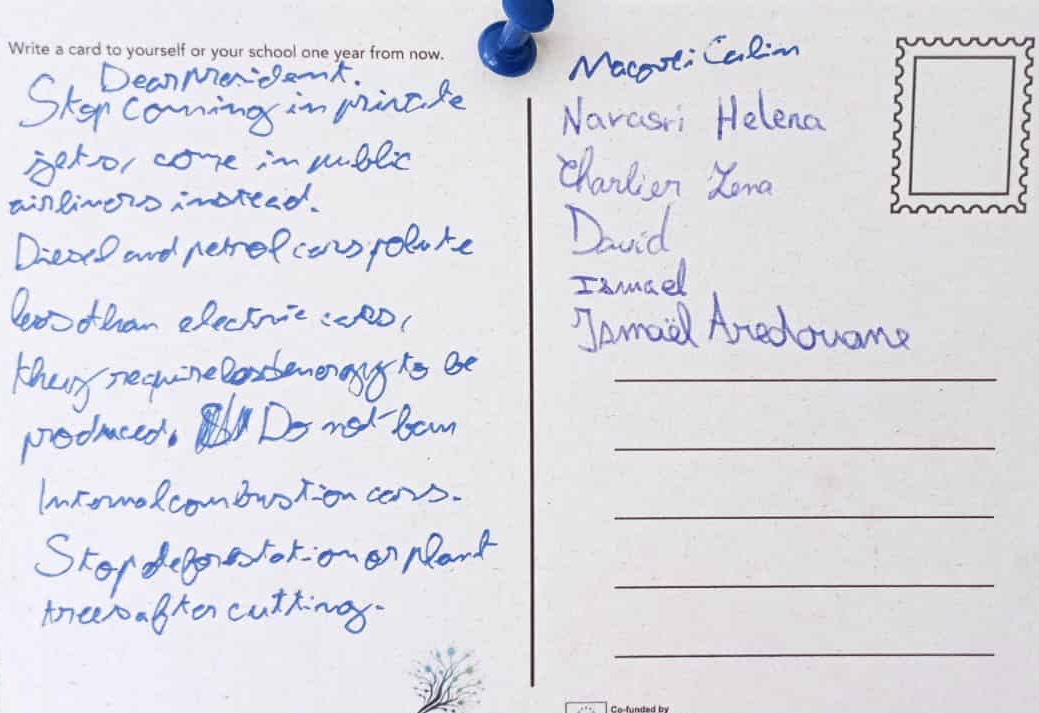 Write a card to yourself or your school one year from now.
Dear president.
Stop coming in private
jets, come in public
airliners instead.
Diesel and petrol cars polute
less than electric cars,
they require less energy to be
produced. Do not ban
Internal combustion cars.
Stop deforestation or plant
trees after cutting.
Calin
Navasri Helena
Charlier Zena
David
Ismael
Ismaël Aredouane
Co-funded by